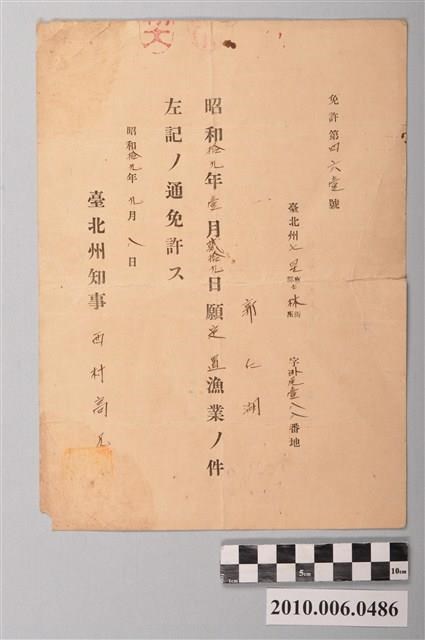 免許第四六壹號
臺北州七星郡士林街字外双溪一八八番地
郭仁湖
昭和拾九年壹月貳拾九日願定置漁業ノ件
左記ノ通免許ス
昭和拾九年九月八日
臺北州知事 西村高兄
1cm
5cm
10cm
2010.006.0486